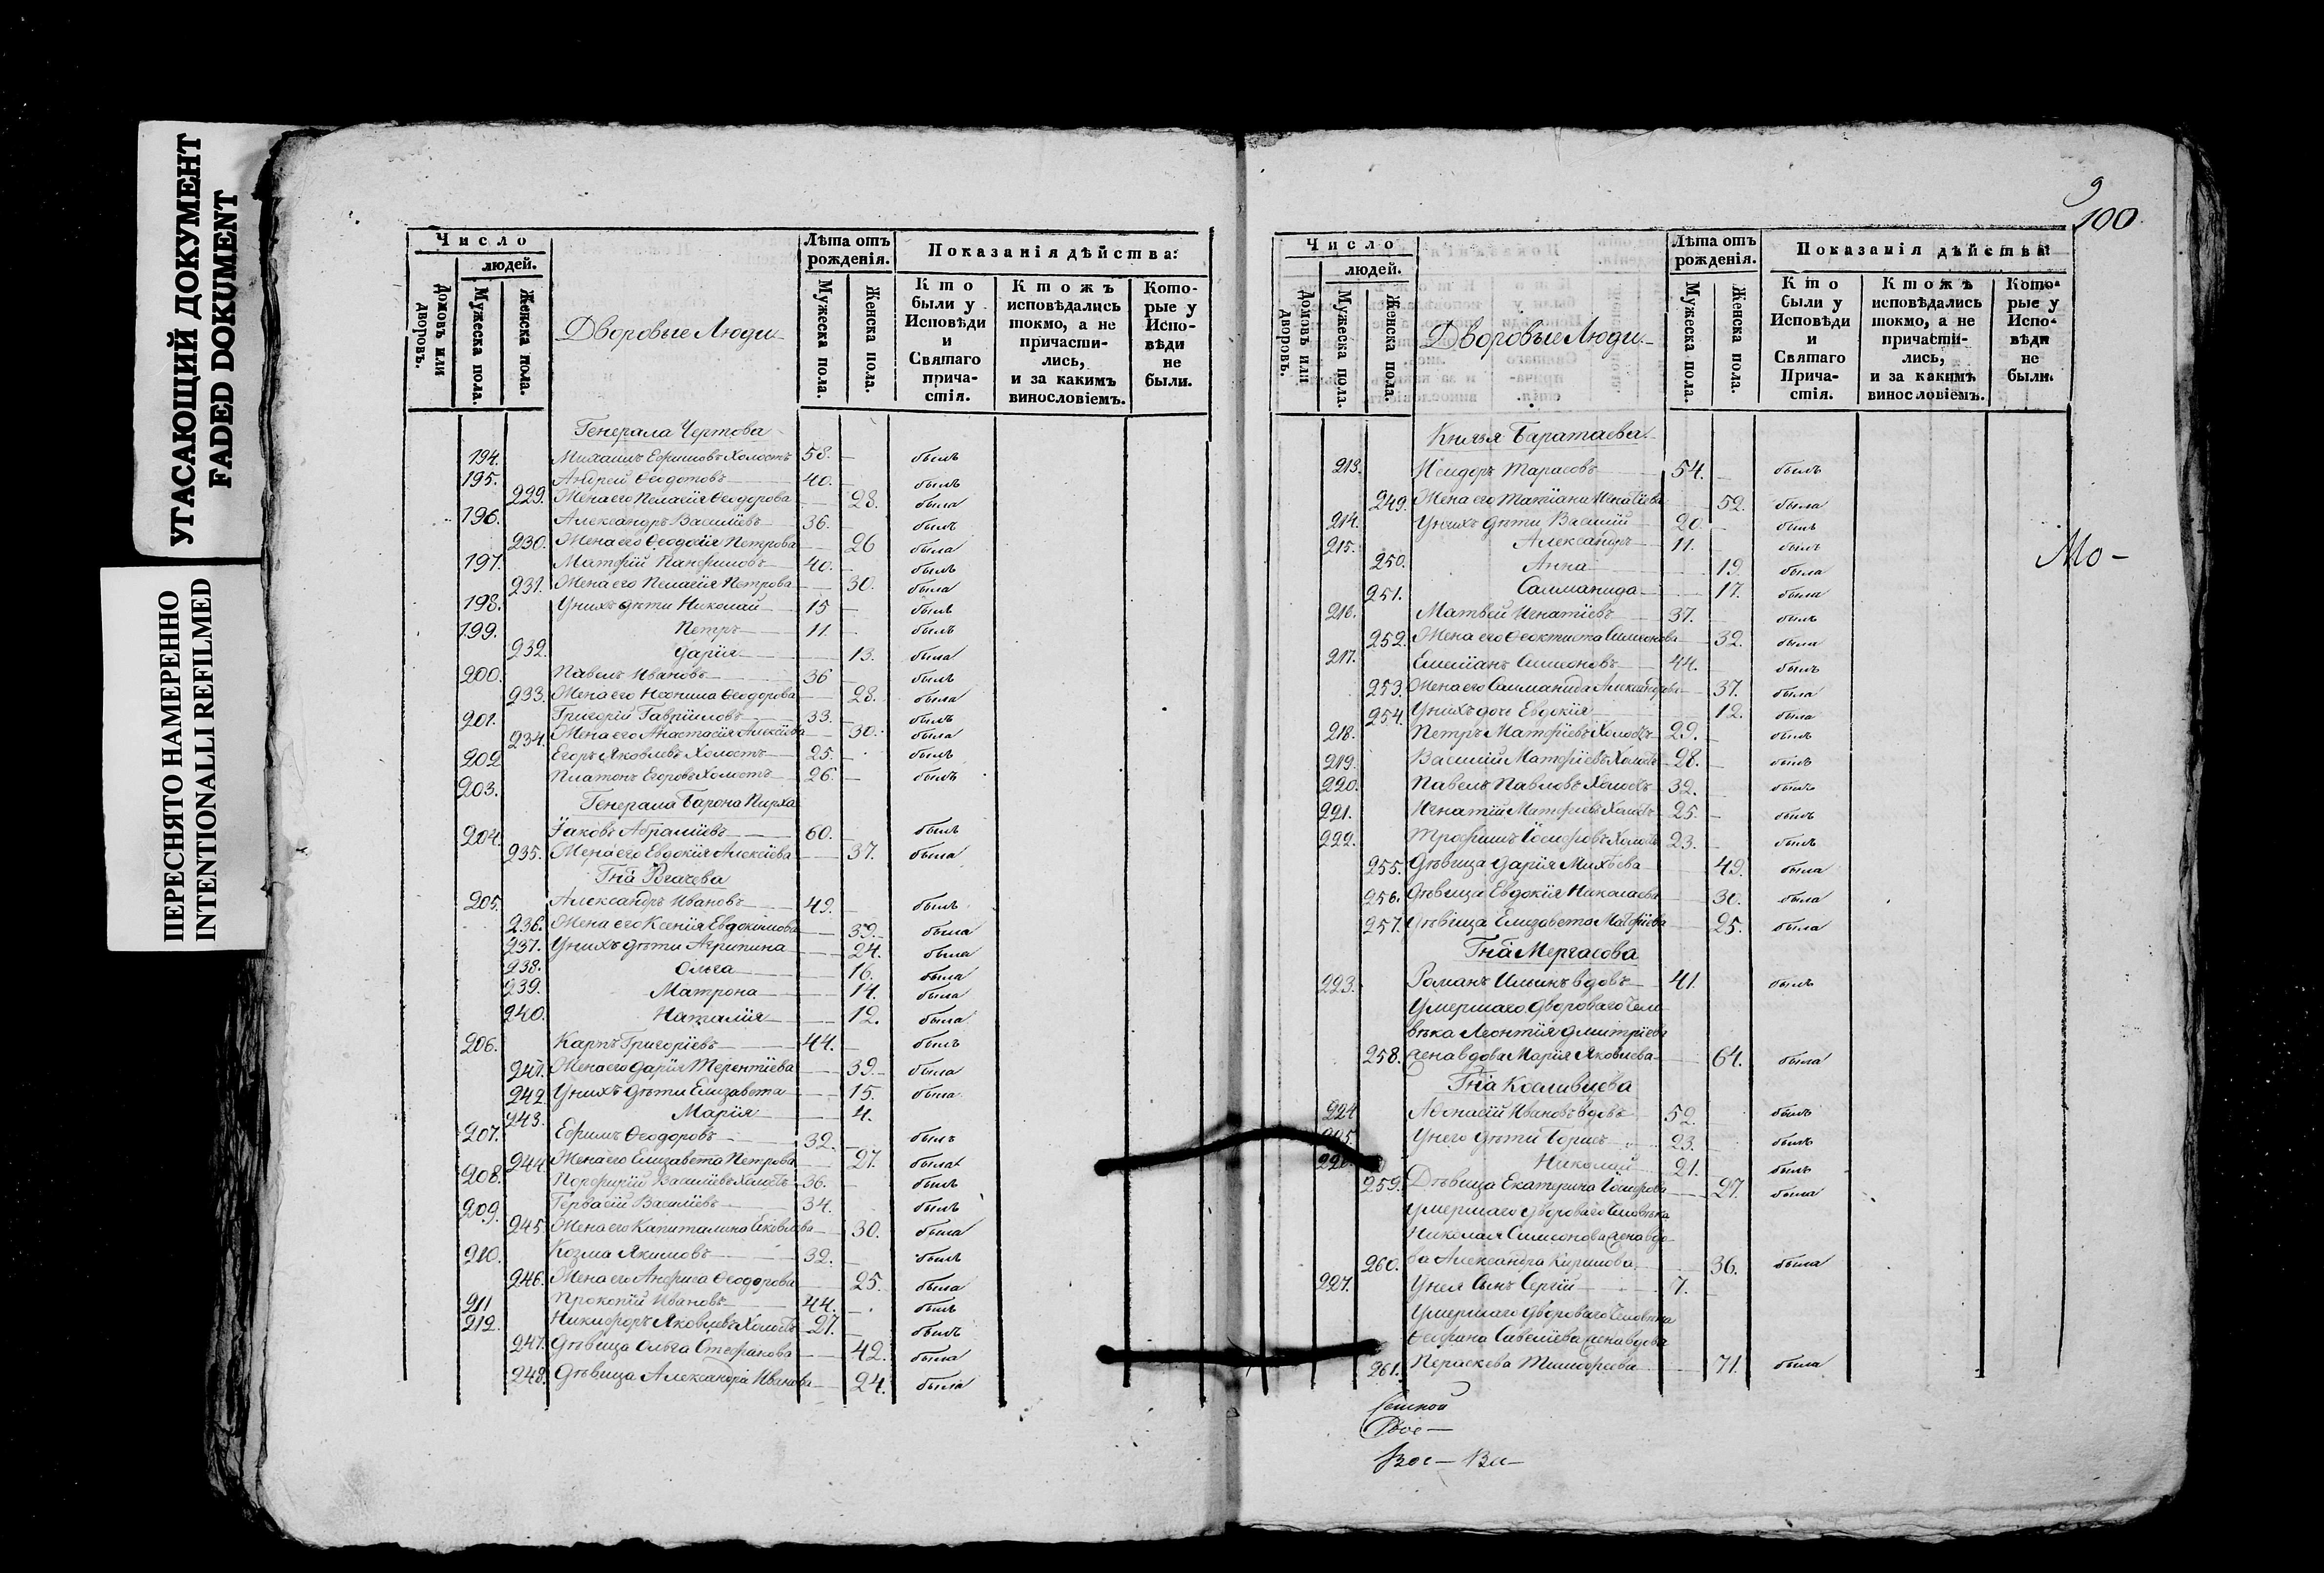 УГАСАЮЩИЙ ДОКУМЕНТ
FADED DOKUMENT
ПЕРЕСНЯТО НАМЕРЕННО
INTENTIONALLI REFILMED
Число
людей.
Домовъ или дворовъ.
Мужеска пола.
Женска пола.
Дворовые Люди
Лѣта отъ рожденія.
Мужеска пола.
Женска пола.
Показанія дѣйства:
Кто были у Исповѣди и Святаго причастія.
Ктожъ исповѣдались токмо, а не причастились, и за какимъ винословіемъ.
Которые у Исповѣди не были.
Генерала Чертова
194. Михаилъ Ефимовъ Холостъ 58. былъ
195. Андрей Ѳеодотовъ 40. былъ
229. Жена его Пелагія Ѳеодорова 28. была
196. Александръ Василіевъ 36. былъ
230. Жена его Ѳеодосія Петрова 26 была
197. Матфій Панфиловъ 40. былъ
231. Жена его Пелагія Петрова 30. была
198. Унихъ дѣти Николай 15 былъ
199. Петръ 11. былъ
232. Дарія 13. была
200. Павелъ Ивановъ 36 былъ
233. Жена его Неонила Ѳеодорова 28. была
201. Григорій Гавріиловъ 33. былъ
234. Жена его Анастасія Алексіева 30. была
202 Егоръ Яковлевъ Холостъ 25. былъ
203. Платонъ Егоровъ Холостъ 26. былъ
Генерала Барона Пирха
204. Іаковъ Абраміевъ 60. былъ
235. Жена его Евдокія Алексіева 37. была
Гна Рогачева
205. Александръ Ивановъ 49. былъ
236. Жена его Ксенія Евдокимова 39. была
237. Унихъ дѣти Агрипина 24. была
238. Ольга 16. была
239. Матрона 14. была
240. Наталія 12. была
206. Карпъ Григоріевъ 44. былъ
241. Жена его Дарія Терентіева 39. была
242. Унихъ дѣти Елизавета 15. была
243. Марія 4.
207. Ефимъ Ѳеодоровъ 32. былъ
244. Жена его Елизавета Петрова 27. была
208. Порфирій Василіевъ Холостъ 36. былъ
209. Гервасій Василіевъ 34. былъ
245. Жена его Капиталина Яковлева 30. была
210. Козма Якимовъ 32. былъ
246. Жена его Анфиса Ѳеодорова 25. была
211 Прокопій Ивановъ 44. былъ
212. Никифоръ Яковлевъ Холостъ 27. былъ
247. Дѣвица Ольга Стефанова 42. была
248. Дѣвица Александра Иванова 24. была
9
100
Число
людей.
Домовъ или дворовъ.
Мужеска пола.
Женска пола.
Дворовые Люди.
Лѣта отъ рожденія.
Мужеска пола.
Женска пола.
Показанія дѣйства:
Кто были у Исповѣди и Святаго Причастія.
Ктожъ исповѣдались токмо, а не причастились, и за какимъ винословіемъ.
Которые у Исповѣди не были.
Князя Баратаева
213. Исидоръ Тарасовъ 54. былъ
249. Жена его Татіана Игнатіева 52. была
214. Унихъ дѣти Василій 20. былъ
215. Александръ 11. былъ
Мо-
250. Анна 19. была
251. Саломанида 17. была
216. Матвей Игнатіевъ 37. былъ
252. Жена его Ѳеоктиста Симеонова 32. была
217. Емеліанъ Симеоновъ 44. былъ
253. Жена его Саломанида Александрова 37. была
254. Унихъ дочь Евдокія 12. была
218. Петръ Матфіевъ Холостъ 29. былъ
219. Василій Матфіевъ Холостъ 28. былъ
220. Павелъ Павловъ Холостъ 32. былъ
221. Игнатій Матфіевъ Холостъ 25. былъ
222. Трофимъ Іосифовъ Холостъ 23. былъ
255. Дѣвица Дарія Михѣева 49. была
256. Дѣвица Евдокія Николаева 30. была
257. Дѣвица Елизавета Матфіева 25. была
Гна Мергасова
223. Романъ Ильинъ вдовъ 41. былъ
Умершаго дворового чело
вѣка Леонтія Дмитріева
258. жена вдова Марія Яковлева 64. была
Гна Косливцева
224 Аѳонасій Ивановъ вдовъ 52. былъ
225. Унего дѣти Борисъ 23. былъ
226. Николай 21. былъ
259. Дѣвица Екатерина Іосифова 27. была
умершаго дворового человѣка
Николая Симонова жена вдо-
260. ва Александра Кирилова 36. была
227. Унея Сынъ Сергій 7.
Умершаго дворового человѣка
Савеліева жена вдова
261. Параскева Тимофеева 71. была